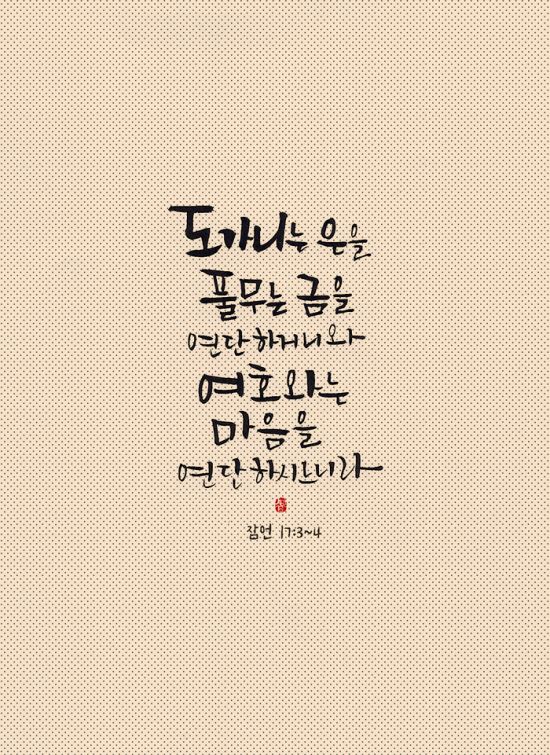 도가니는 은을
풀무는 금을
연단하거니와
여호와는
마음을
연단하시느니라
잠언 17:3~4